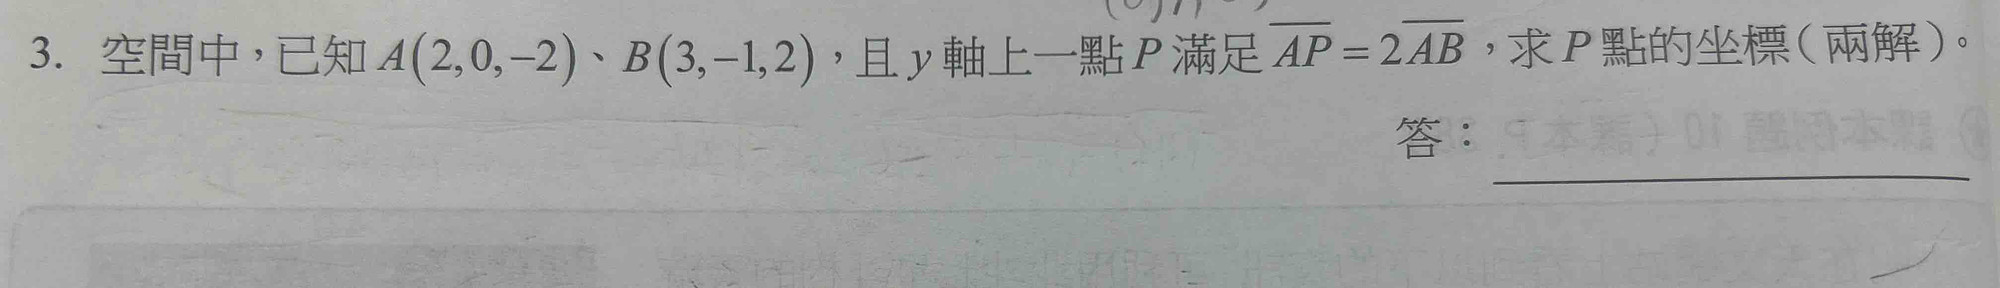 3. 空間中，已知 A(2,0,−2)、B(3,−1,2)，且 y 軸上一點 P 滿足 \overline{AP} = 2\overline{AB}，求 P 點的坐標（兩解）。
答：